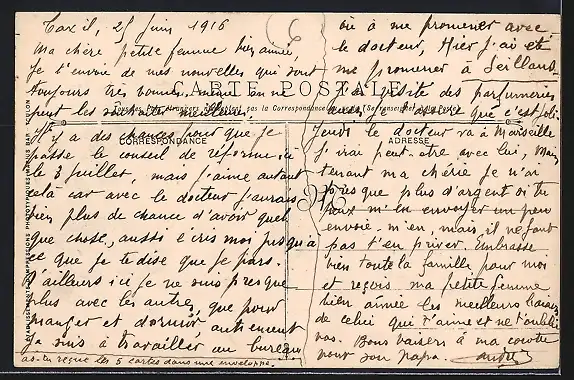 25 Juin 1916
Ma chère petite femme bien aimée
Je t'envoie de mes nouvelles qui sont
toujours très bonnes, même on ne
peut les souhaiter meilleures.
CARTE POSTALE
CORRESPONDANCE
ADRESSE
Il y a des chances pour que je
passe le conseil de réforme ici
le 3 juillet, mais j'aime autant
celà car avec le docteur j'aurais
bien plus de chance d'avoir quel
que chose, aussi écris moi jusqu'à
ce que je te dise que je pars.
D'ailleurs ici je ne suis presque
plus avec les autre, que pour
manger et dormir autrement
je suis à travailler au bureau
as-tu reçue les 5 cartes dans une enveloppe.
où à me promener avec
le docteur, Hier j'ai été
me promener à Seillans
la visite des parfumeries
je t'assure que c'est joli
Jeudi le docteur va à Marseille
J'irai peut-être avec lui, Main
tenant ma chérie je n'ai
presque plus d'argent si tu
peux m'en envoyer un peu
envoie-m'en, mais, il ne faut
pas t'en priver. Embrasse
bien toute la famille pour moi
et reçois ma petite femme
bien aimée les meilleurs baisers
de celui qui t'aime et ne t'oublie
pas. Bons baisers à ma
pour son papa. André